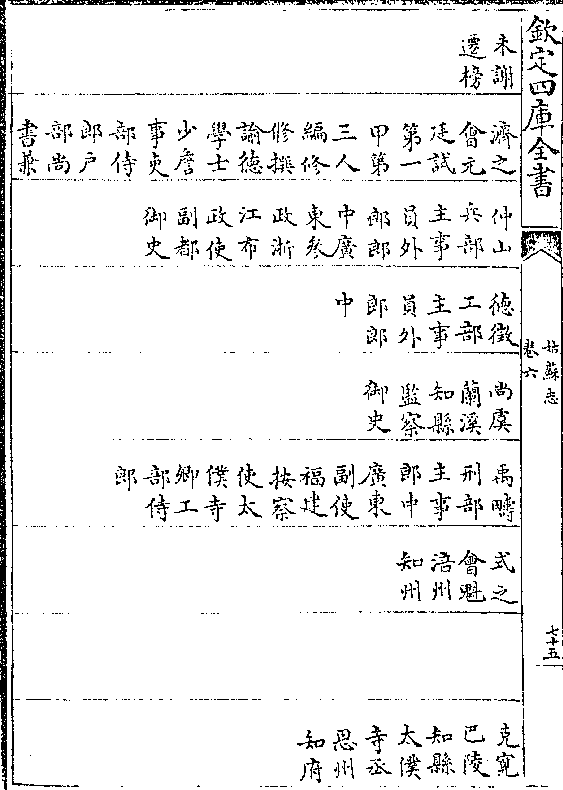 欽定四庫全書
姑蘇志
卷六
七十五
未謝
遷榜
濟之
會元
廷試
第一
甲第
三人
編修
修撰
諭德
學士
少詹
事吏
部侍
郎戶
部尚
書兼
仲山
兵部
主事
員外
郎郎
中廣
東參
政浙
江布
政使
副都
御史
德徵
工部
主事
員外
郎郎
中
尚虞
蘭溪
知縣
監察
御史
禹疇
刑部
主事
郎中
廣東
副使
福建
按察
使太
僕寺
卿工
部侍
郎
式之
會魁
涪州
知州
克寛
巴陵
知縣
太僕
寺丞
思州
知府